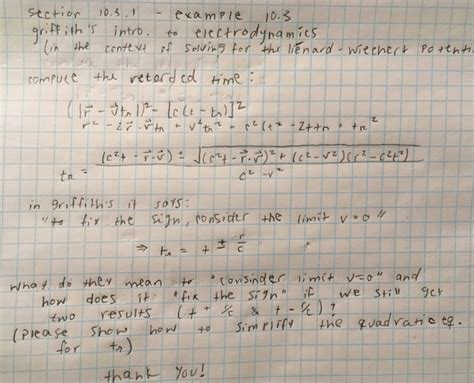 section 10.3.1 - example 10.3
griffith's intro. to electrodynamics
(in the context of solving for the liénard-wiechert potenti
compute the retarded time:
(|r⃗ - v⃗tr|)² = [c(t - tr)]²
r² - 2r⃗·v⃗tr + v²tr² = c²(t² - 2ttr + tr²
tr = (c²t - r⃗·v⃗) ± √((c²t - r⃗·v⃗)² + (c² - v²)(r² - c²t²) / c² - v²
in griffith's it says:
"to fix the sign, consider the limit v=0"
⇒ tr = t ± r/c
what do they mean to "consinder limit v=0" and
how does it "fix the sign" if we still get
two results (t + r/c & t - r/c)?
(please show how to simplify the quadratic eq.
for tr)
thank you!